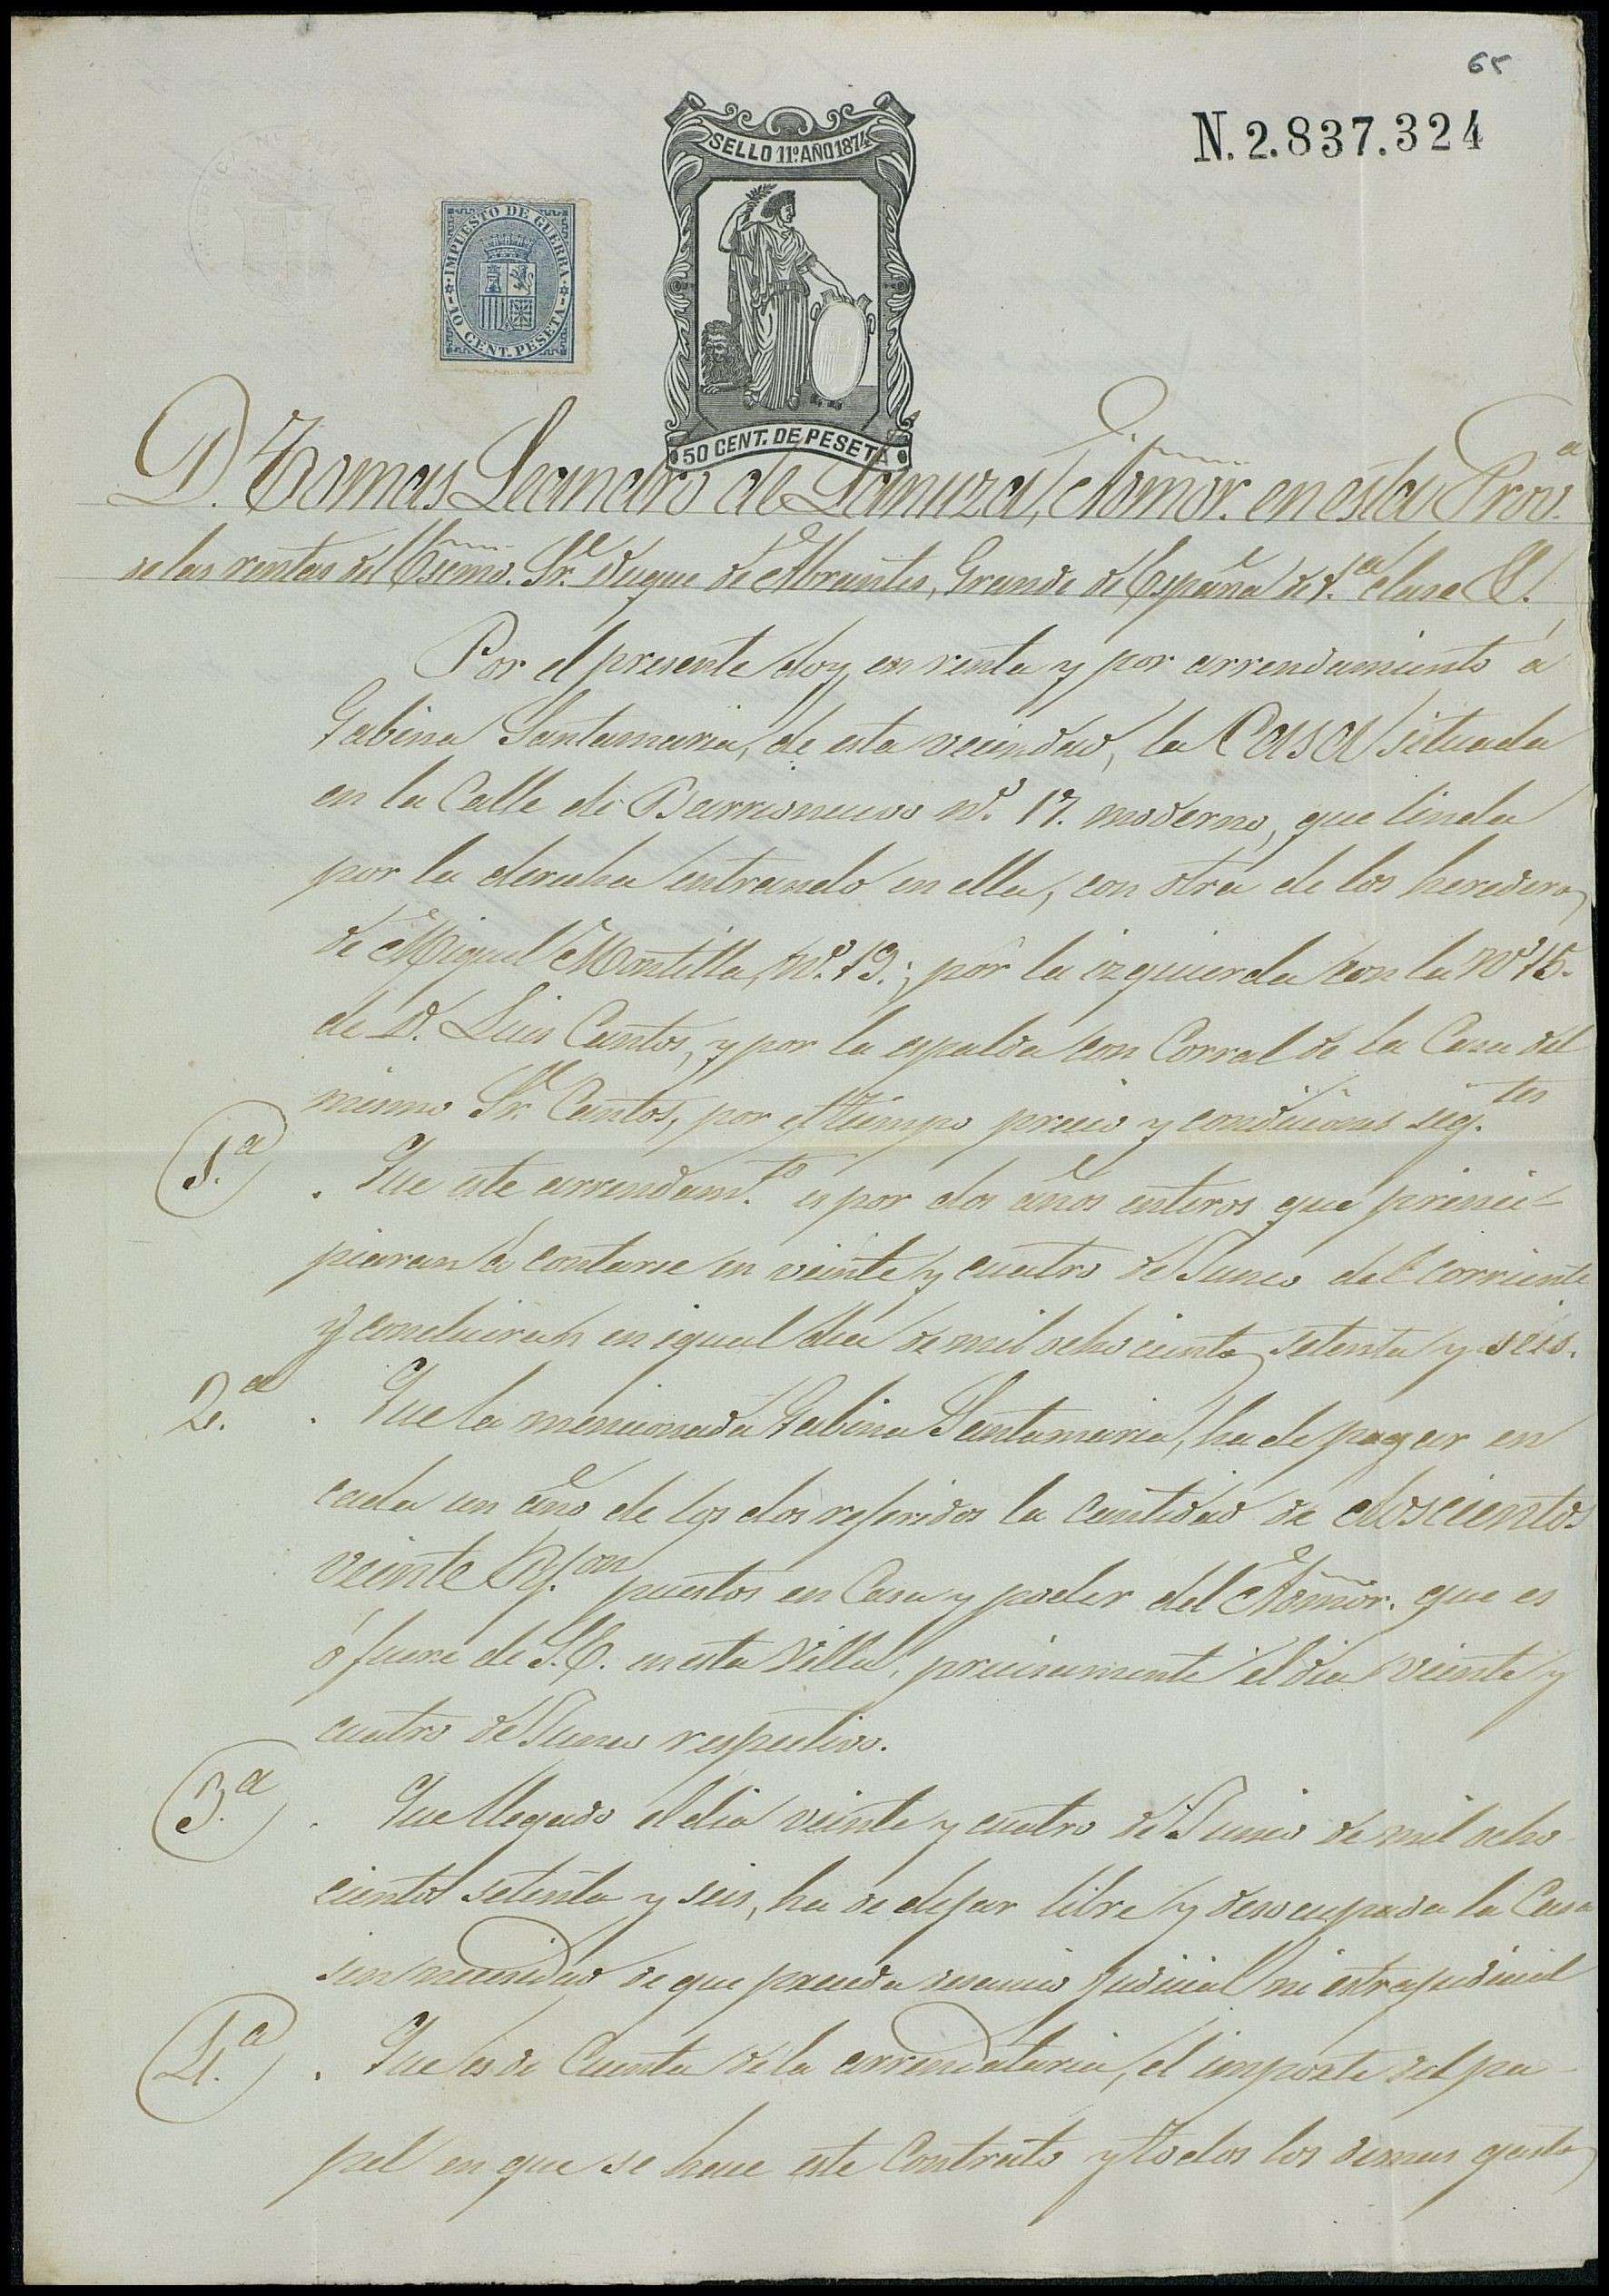 65
N. 2.837.324
SELLO 11º AÑO 1874
IMPUESTO DE GUERRA
10 CENT. PESETA
50 CENT. DE PESETA
D. Tomas Leandro de Lanuza, Admõr. en esta Prov.ª
de las rentas del Escmo. Sr. Duque de Abrantes, Grande de España de 1.ª clase &.
Por el presente doy en renta y por arrendamiento á
Gabina Santamaria, de esta vecindad, la Casa situada
en la Calle de Barrionuevo nº. 17. moderno, que linda
por la derecha entrando en ella, con otra de los herederos
de Miguel Montilla, nº. 19.; por la izquierda con la nº 15.
de D. Luis Cantos, y por la espalda con Corral de la Casa del
mismo Sr. Cantos, por el tiempo precio y condiciones sig.tes
1.ª . Que este arrendam.to es por dos años enteros que princi-
piaran á contarse en veinte y cuatro de Junio del corriente
y concluiran en igual dia de mil ochocientos setenta y seis.
2.ª . Que la mencionada Gabina Santamaria, ha de pagar en
cada un año de los dos referidos la cantidad de doscientos
veinte R.s von puestos en Casa y poder del Admõr. que es
ó fuere de S.E. en esta Villa, precisamente el dia veinte y
cuatro de Junio respectivo.
3.ª . Que llegado el dia veinte y cuatro de Junio de mil ocho
cientos setenta y seis, ha de dejar libre y desocupada la Casa
sin necesidad de que preceda desaucio judicial ni estrajudicial
4.ª . Que es de Cuenta de la arrendataria, el importe del pa-
pel en que se hace este Contrato y todos los demas gastos